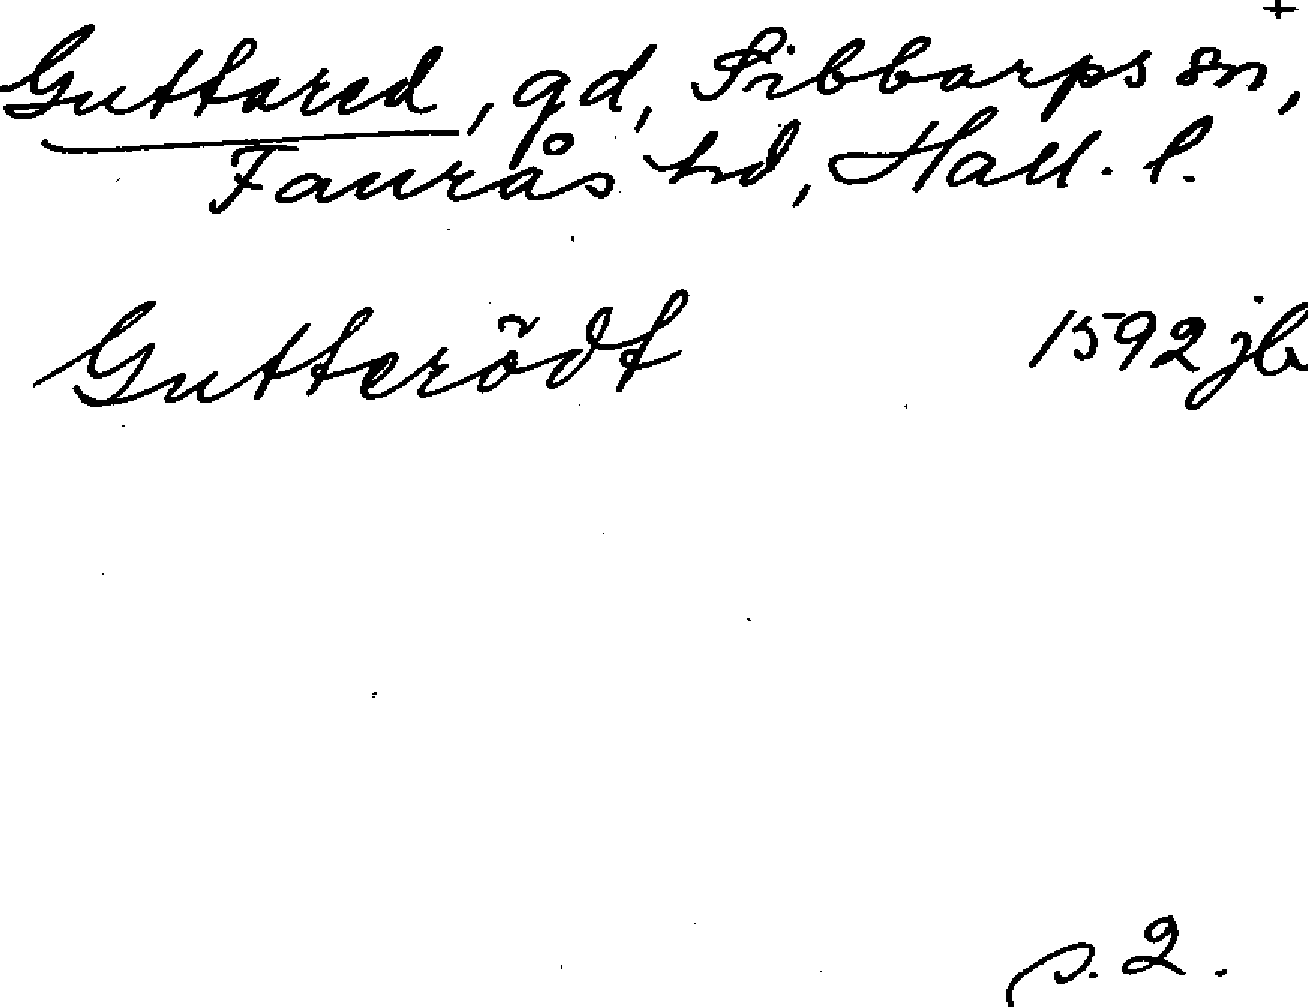 +
Guttared, gd, Sibbarps sn,
Faurås hd, Hall. l.
Gutterödt 1592 jb
s. 2.